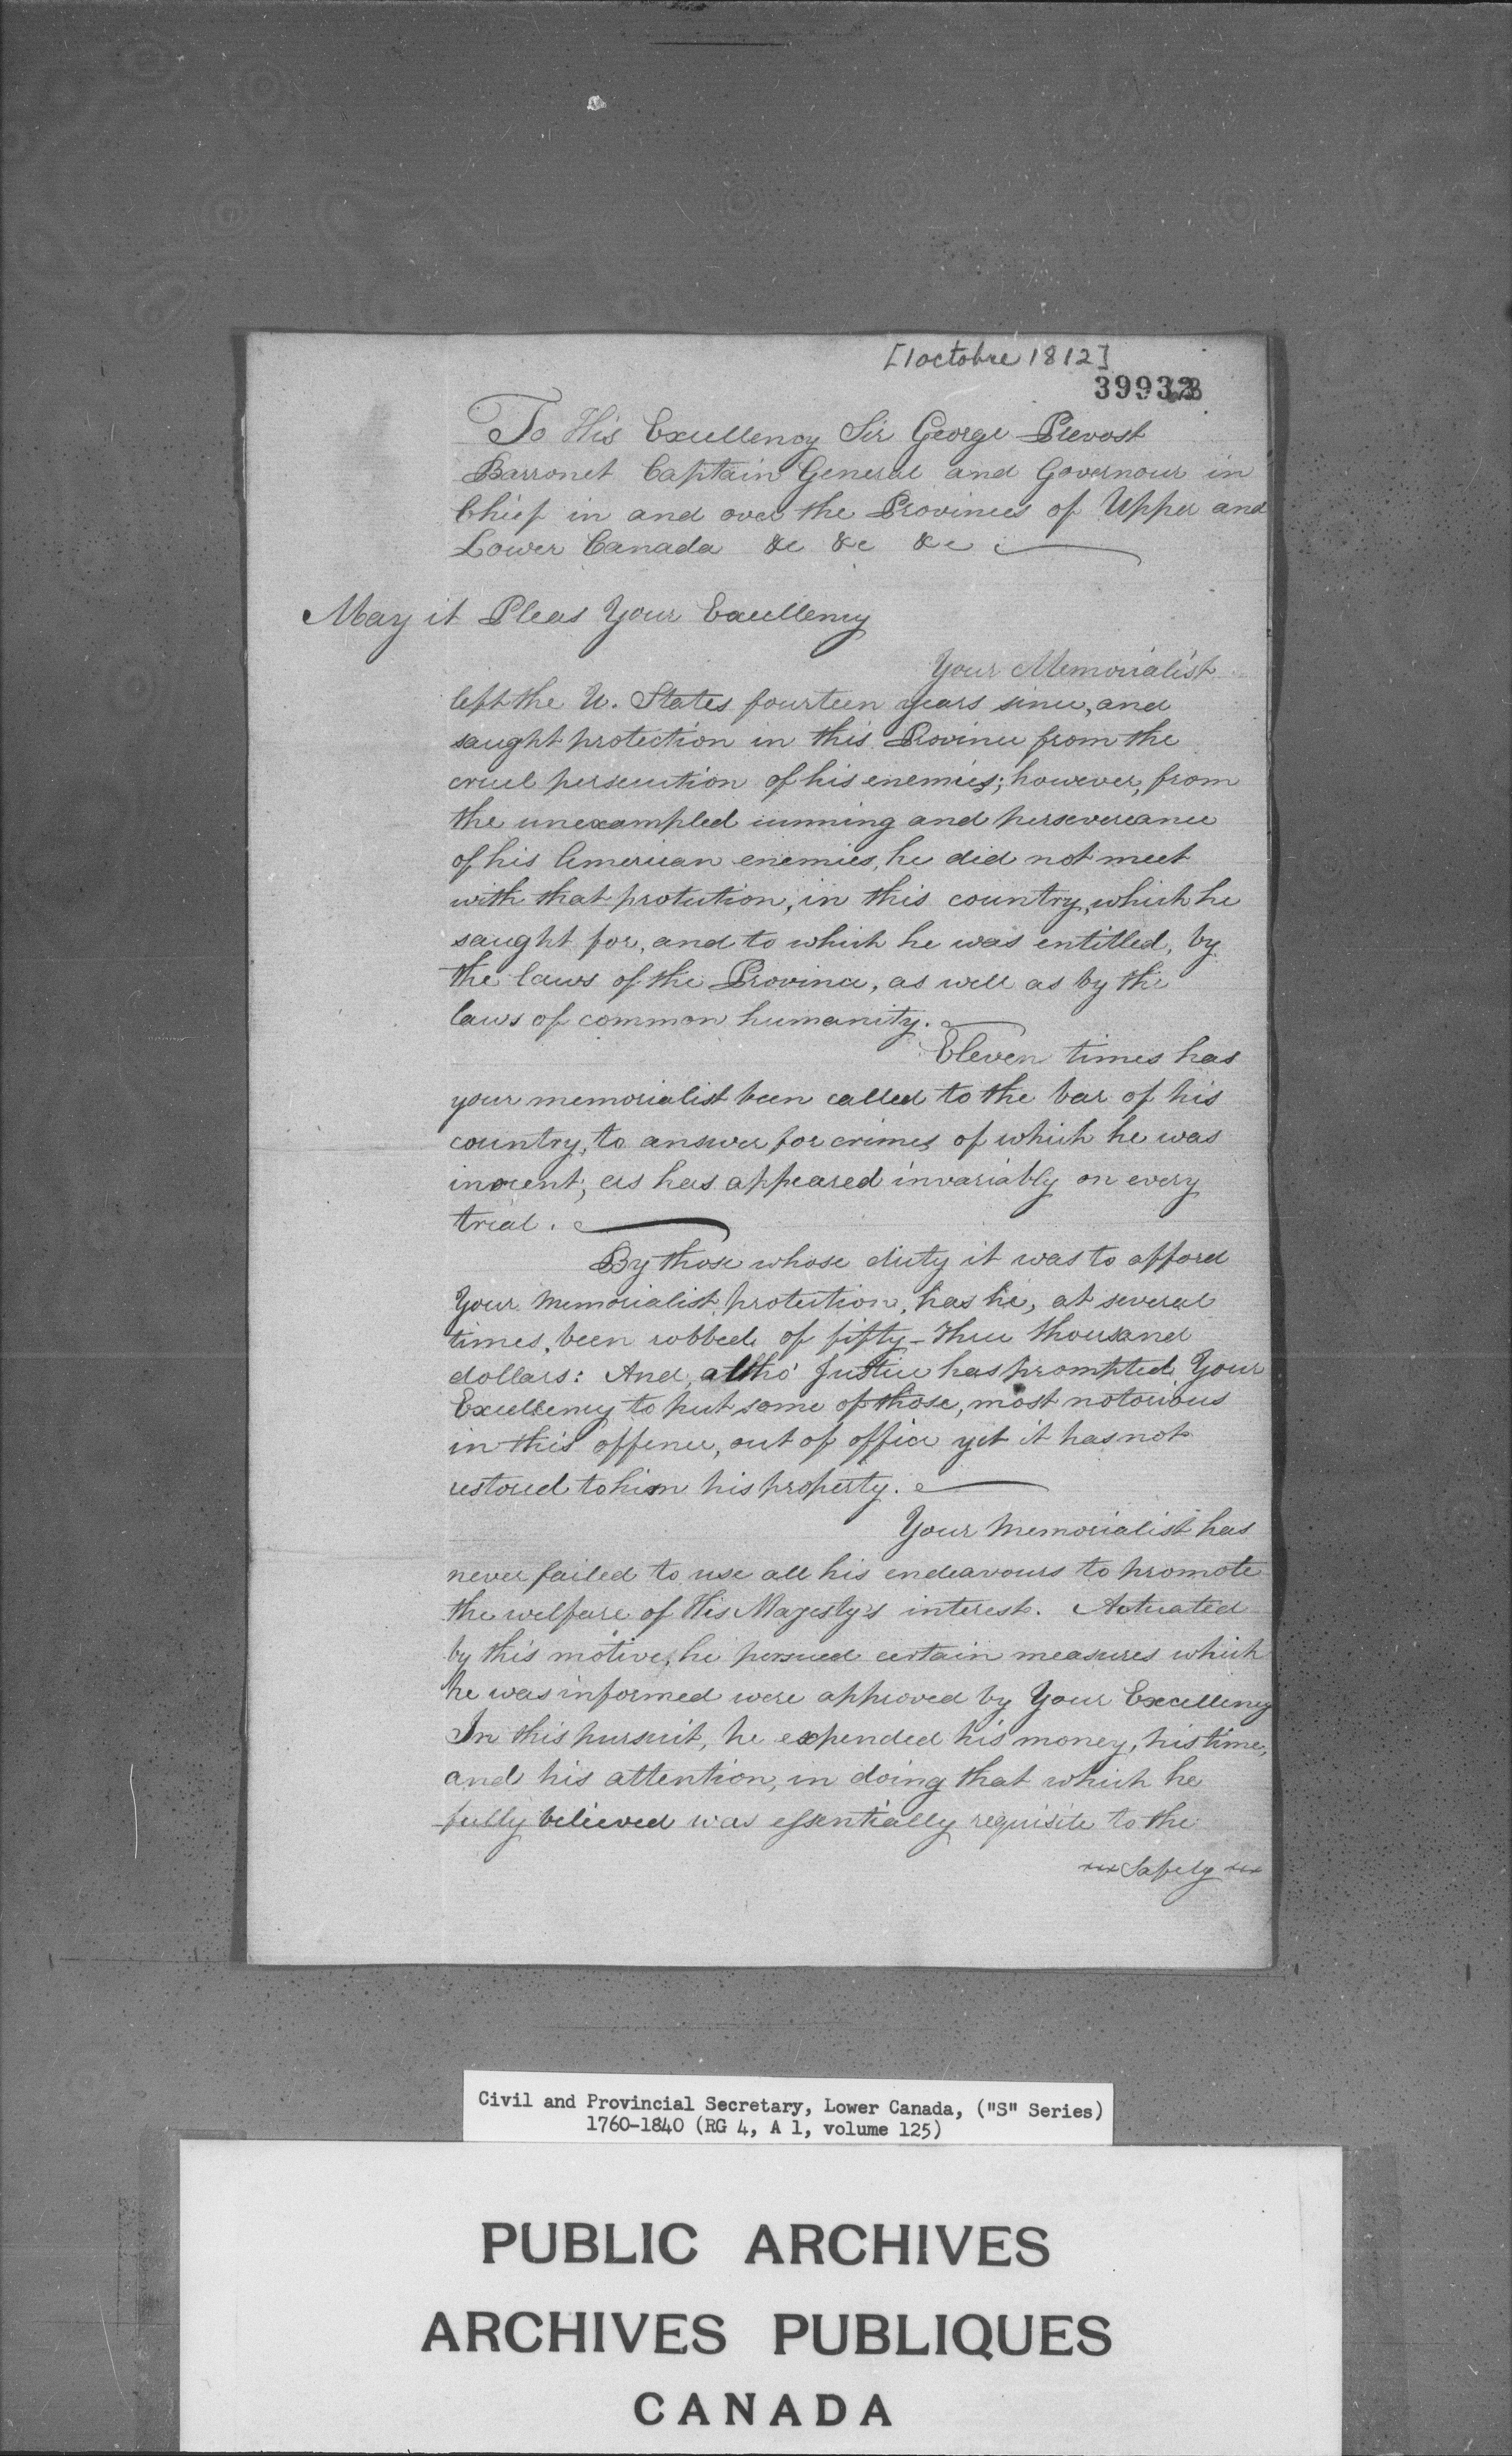 [1 octobre 1812]
39932
To His Excellency Sir George Prevost
Barronet Captain General and Governour in
Chief in and over the Provinces of Upper and
Lower Canada &c &c &c
May it Pleas Your Excellency
Your Memorialist
left the U. States fourteen years since, and
saught protection in this Province from the
cruel persecution of his enemies; however, from
the unexampled cunning and persevereance
of his American enemies, he did not meet
with that protection, in this country, which he
saught for, and to which he was entitled, by
the laws of the Province, as well as by the
laws of common humanity.
Eleven times has
your memorialist been called to the bar of his
country, to answer for crimes of which he was
inocent; as has appeared invariably on every
trial.
By those whose duty it was to afford
Your Memorialist protection, has he, at several
times, been robbed of fifty-three thousand
dollars: And, altho' Justice has prompted Your
Excellency to put some of those, most notorious
in this offence, out of office yet it has not
restored to him his property.
Your Memorialist has
never failed to use all his endeavours to promote
the welfare of His Majesty's interest. Actuated
by this motive, he persued certain measures which
he was informed were approved by Your Excellency
In this pursuit, he expended his money, his time,
and his attention, in doing that which he
fully believed was essentially requisite to the
Safety
Civil and Provincial Secretary, Lower Canada, ("S" Series)
1760-1840 (RG 4, A 1, volume 125)
PUBLIC ARCHIVES
ARCHIVES PUBLIQUES
CANADA